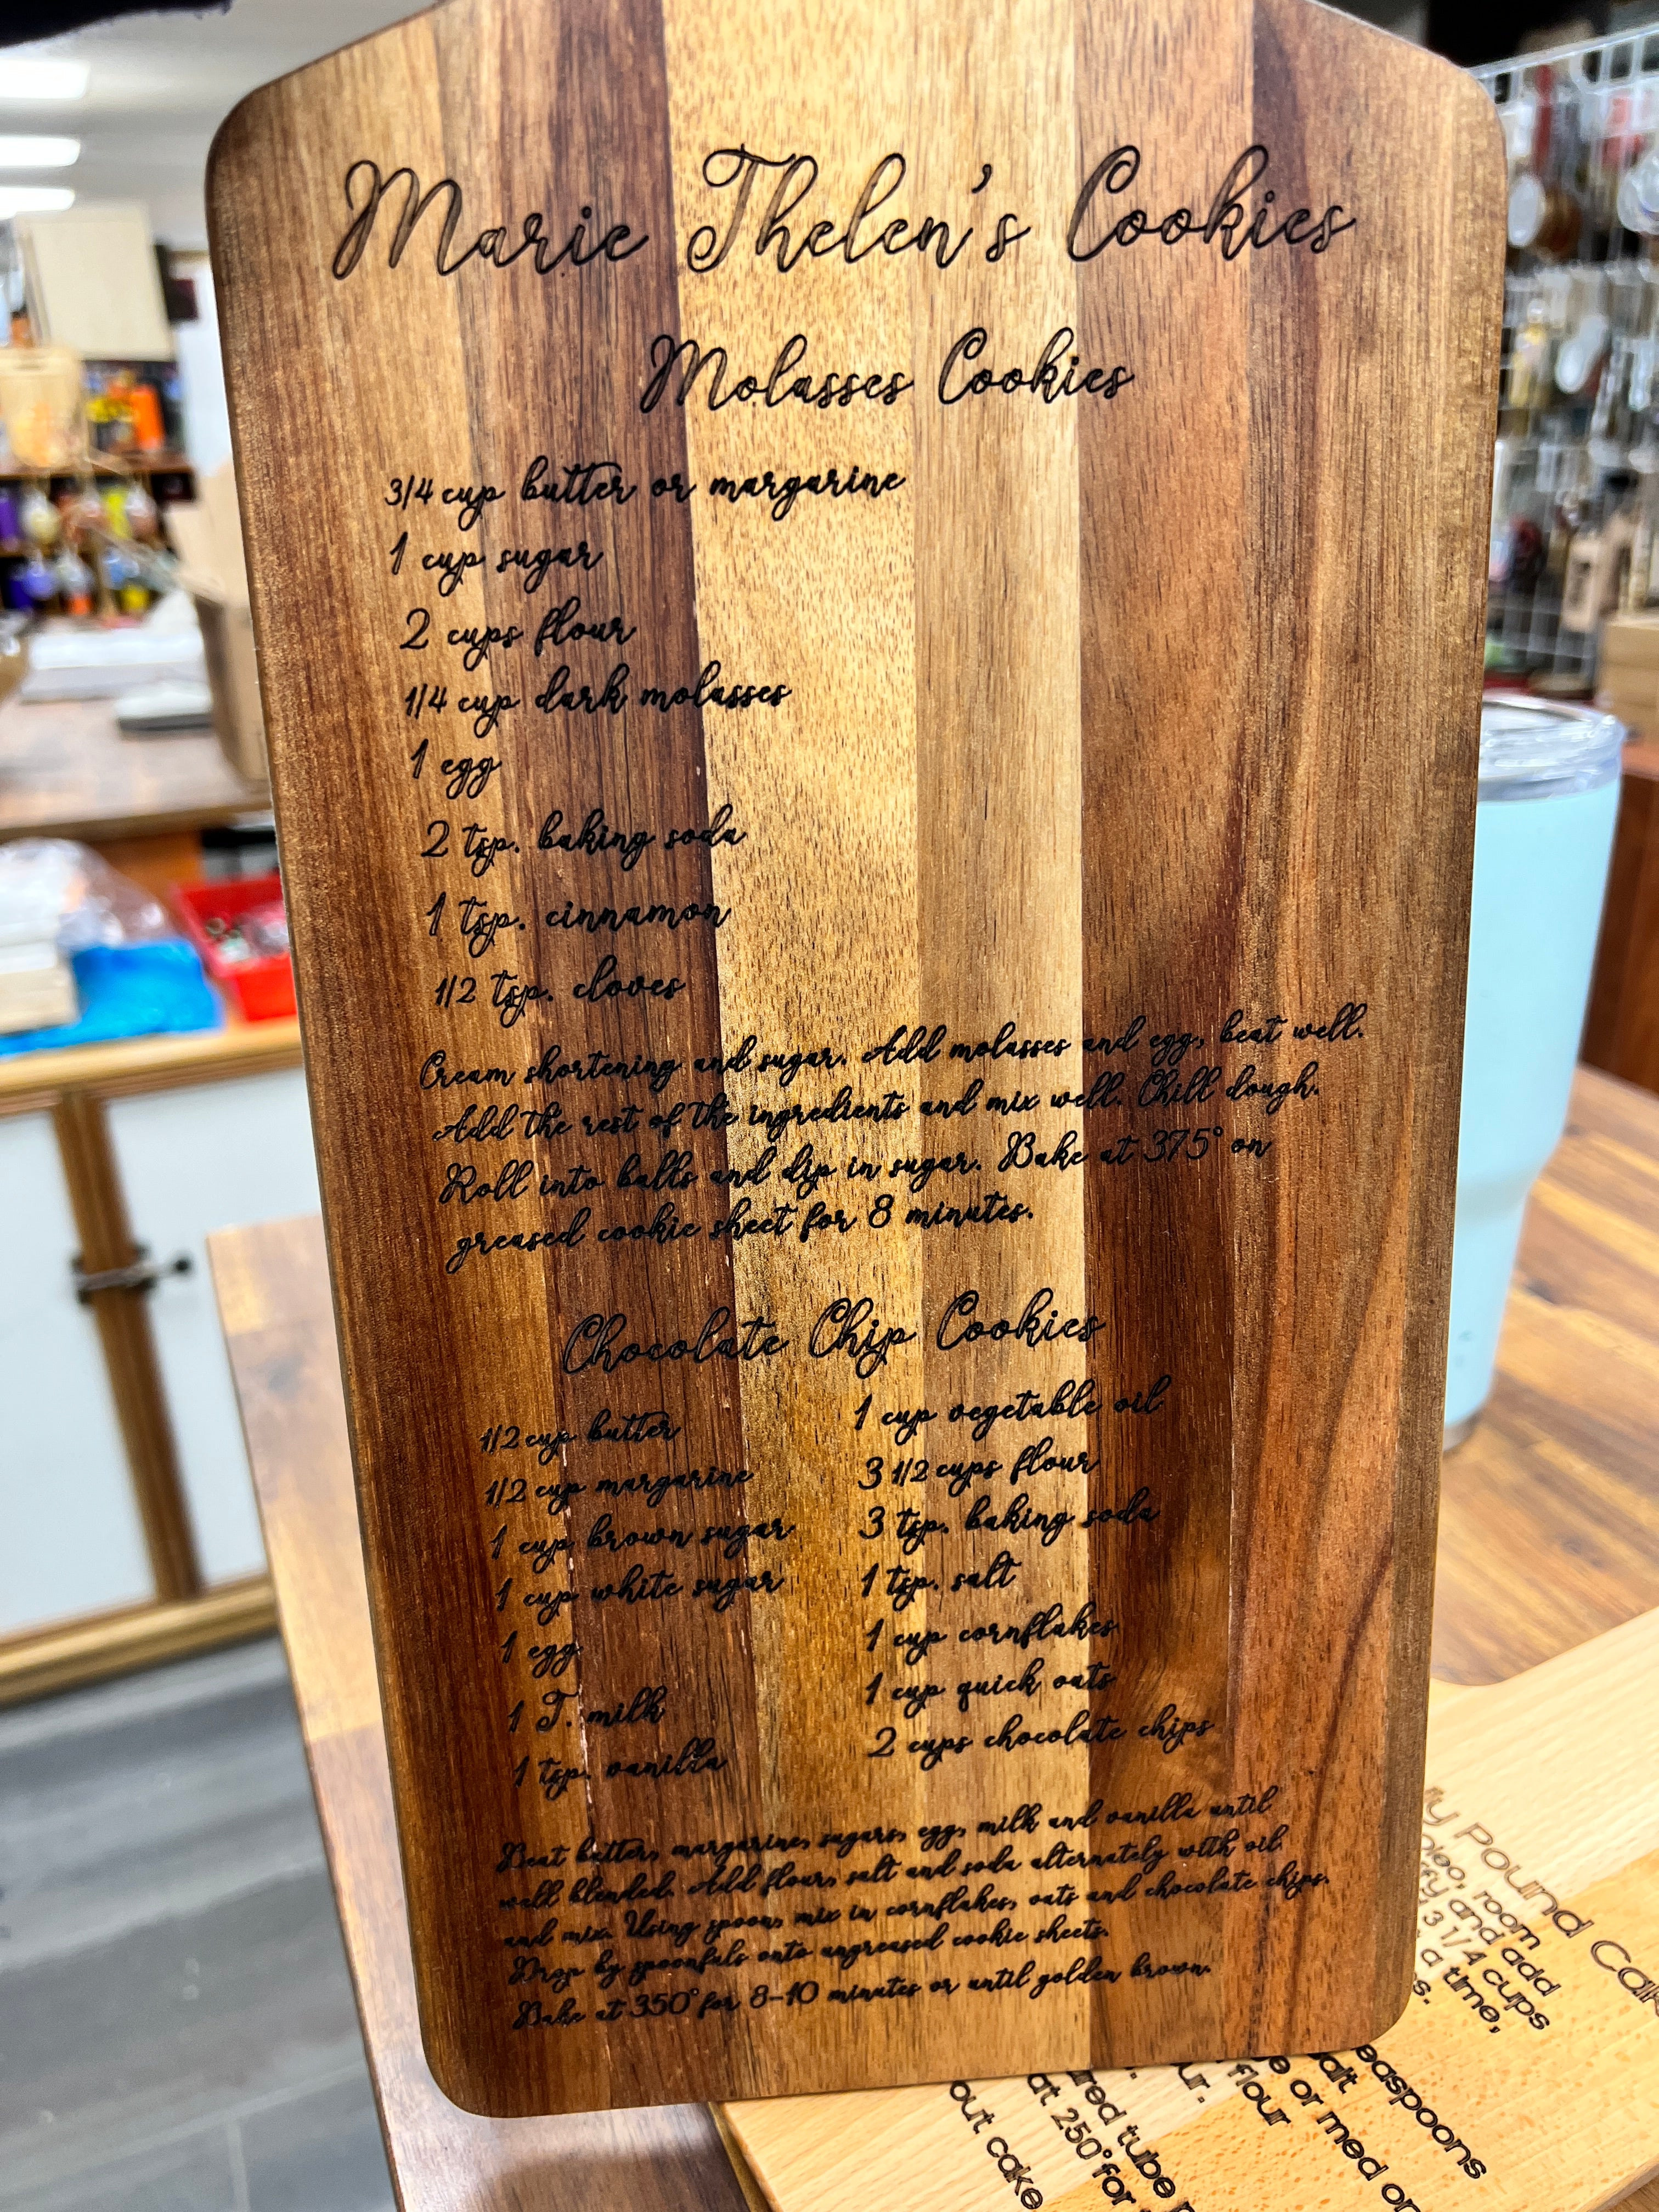 Marie Thelen's Cookies
Molasses Cookies
3/4 cup butter or margarine
1 cup sugar
2 cups flour
1/4 cup dark molasses
1 egg
2 tsp. baking soda
1 tsp. cinnamon
1/2 tsp. cloves
Cream shortening and sugar. Add molasses and egg, beat well.
Add the rest of the ingredients and mix well. Chill dough.
Roll into balls and dip in sugar. Bake at 375° on
greased cookie sheet for 8 minutes.
Chocolate Chip Cookies
1/2 cup butter
1/2 cup margarine
1 cup brown sugar
1 cup white sugar
1 egg
1 T. milk
1 tsp. vanilla
1 cup vegetable oil
3 1/2 cups flour
3 tsp. baking soda
1 tsp. salt
1 cup cornflakes
1 cup quick oats
2 cups chocolate chips
Beat butter, margarine, sugars, egg, milk and vanilla until
well blended. Add flour, salt and soda alternately with oil
and mix. Using spoon, mix in cornflakes, oats and chocolate chips.
Drop by spoonfuls onto ungreased cookie sheets.
Bake at 350° for 8-10 minutes or until golden brown.
Pound Cake
room
and add
3 1/4 cups
a time,
easpoons
salt
or med
flour
tube
at 250° for
out cake